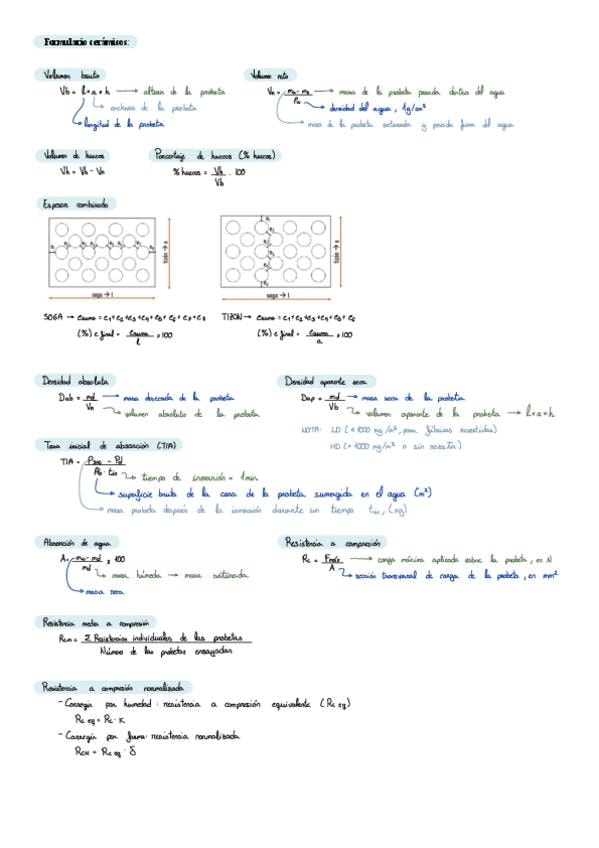 Formulario cerámicos:
Volumen bruto
Vb = l × a × h → altura de la probeta
anchura de la probeta
longitud de la probeta
Volumen neto
Vn = → masa de la probeta pesada dentro del agua
densidad del agua, 1g/cm³
masa de la probeta saturada y pesada fuera del agua
Volumen de huecos
Vh = Vb - Vn
Porcentaje de huecos (% huecos)
% huecos = Vh / Vb · 100
Espesor combinado
tizón → a
soga → l
tizón → a
soga → l
SOGA → = e1+e2+e3+e4+e5+e6+e7+e8
(%) e final = / l × 100
TIZON → = e1+e2+e3+e4+e5+e6
(%) e final = / a × 100
Densidad absoluta
Dab = md / Vn → masa desecada de la probeta
volumen absoluto de la probeta
Densidad aparente seca
Dap = md / Vb → masa seca de la probeta
volumen aparente de la probeta → l×a×h
NOTA: LD (≤ 1000 kg/m³, para fábricas revestidas)
HD (> 1000 kg/m³ o sin revestir)
Tasa inicial de absorción (TIA)
TIA =
tiempo de inmersión = 1min
superficie bruta de la cara de la probeta sumergida en el agua (m²)
masa probeta después de la inmersión durante un tiempo (kg)
Absorción de agua
A = mw - md / md × 100
masa húmeda → masa saturada
masa seca
Resistencia a compresión
Rc = Fmáx / A → carga máxima aplicada sobre la probeta, en N
sección transversal de carga de la probeta, en mm²
Resistencia media a compresión
Rcm = Σ Resistencias individuales de las probetas
Número de las probetas ensayadas
Resistencia a compresión normalizada
- Corregir por humedad: resistencia a compresión equivalente (Rc eq)
Rc eq = Rc · K
- Corregir por forma: resistencia normalizada
RcN = Rc eq · δ